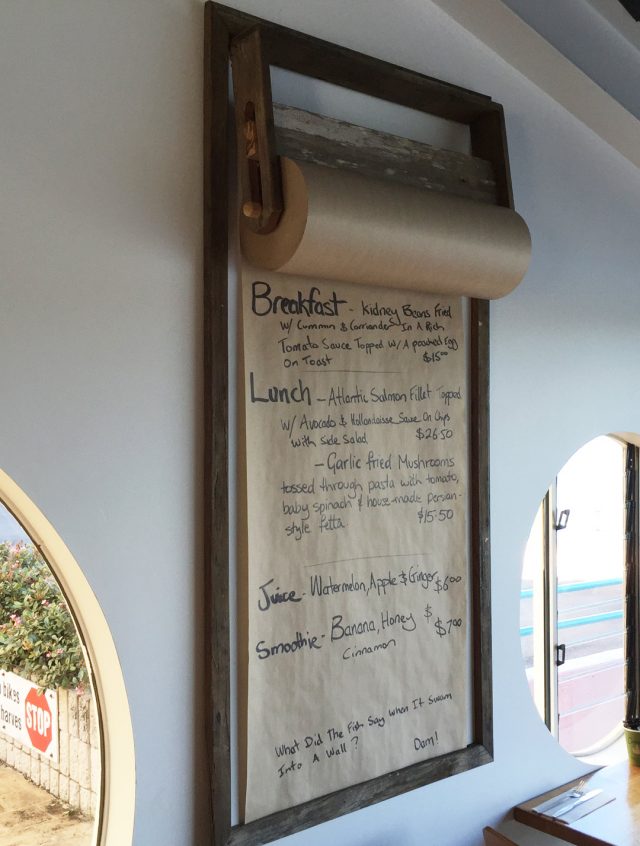 Breakfast - Kidney Beans Fried
w/ Cummin & Corriander In A Rich
Tomato Sauce Topped w/ A poached Egg
On Toast $15.00
Lunch - Atlantic Salmon Fillet Topped
w/ Avocado & Hollandaisse Sauce On Chips
with Side Salad $26.50
- Garlic fried Mushrooms
tossed through pasta with tomato,
baby spinach & house-made persian-
style fetta. $15.50
Juice - Watermelon, Apple & Ginger $6.00
Smoothie - Banana, Honey $
Cinnamon $7.00
What Did The Fish Say When It Swam
Into A Wall? Dam!
bikes
harves
STOP